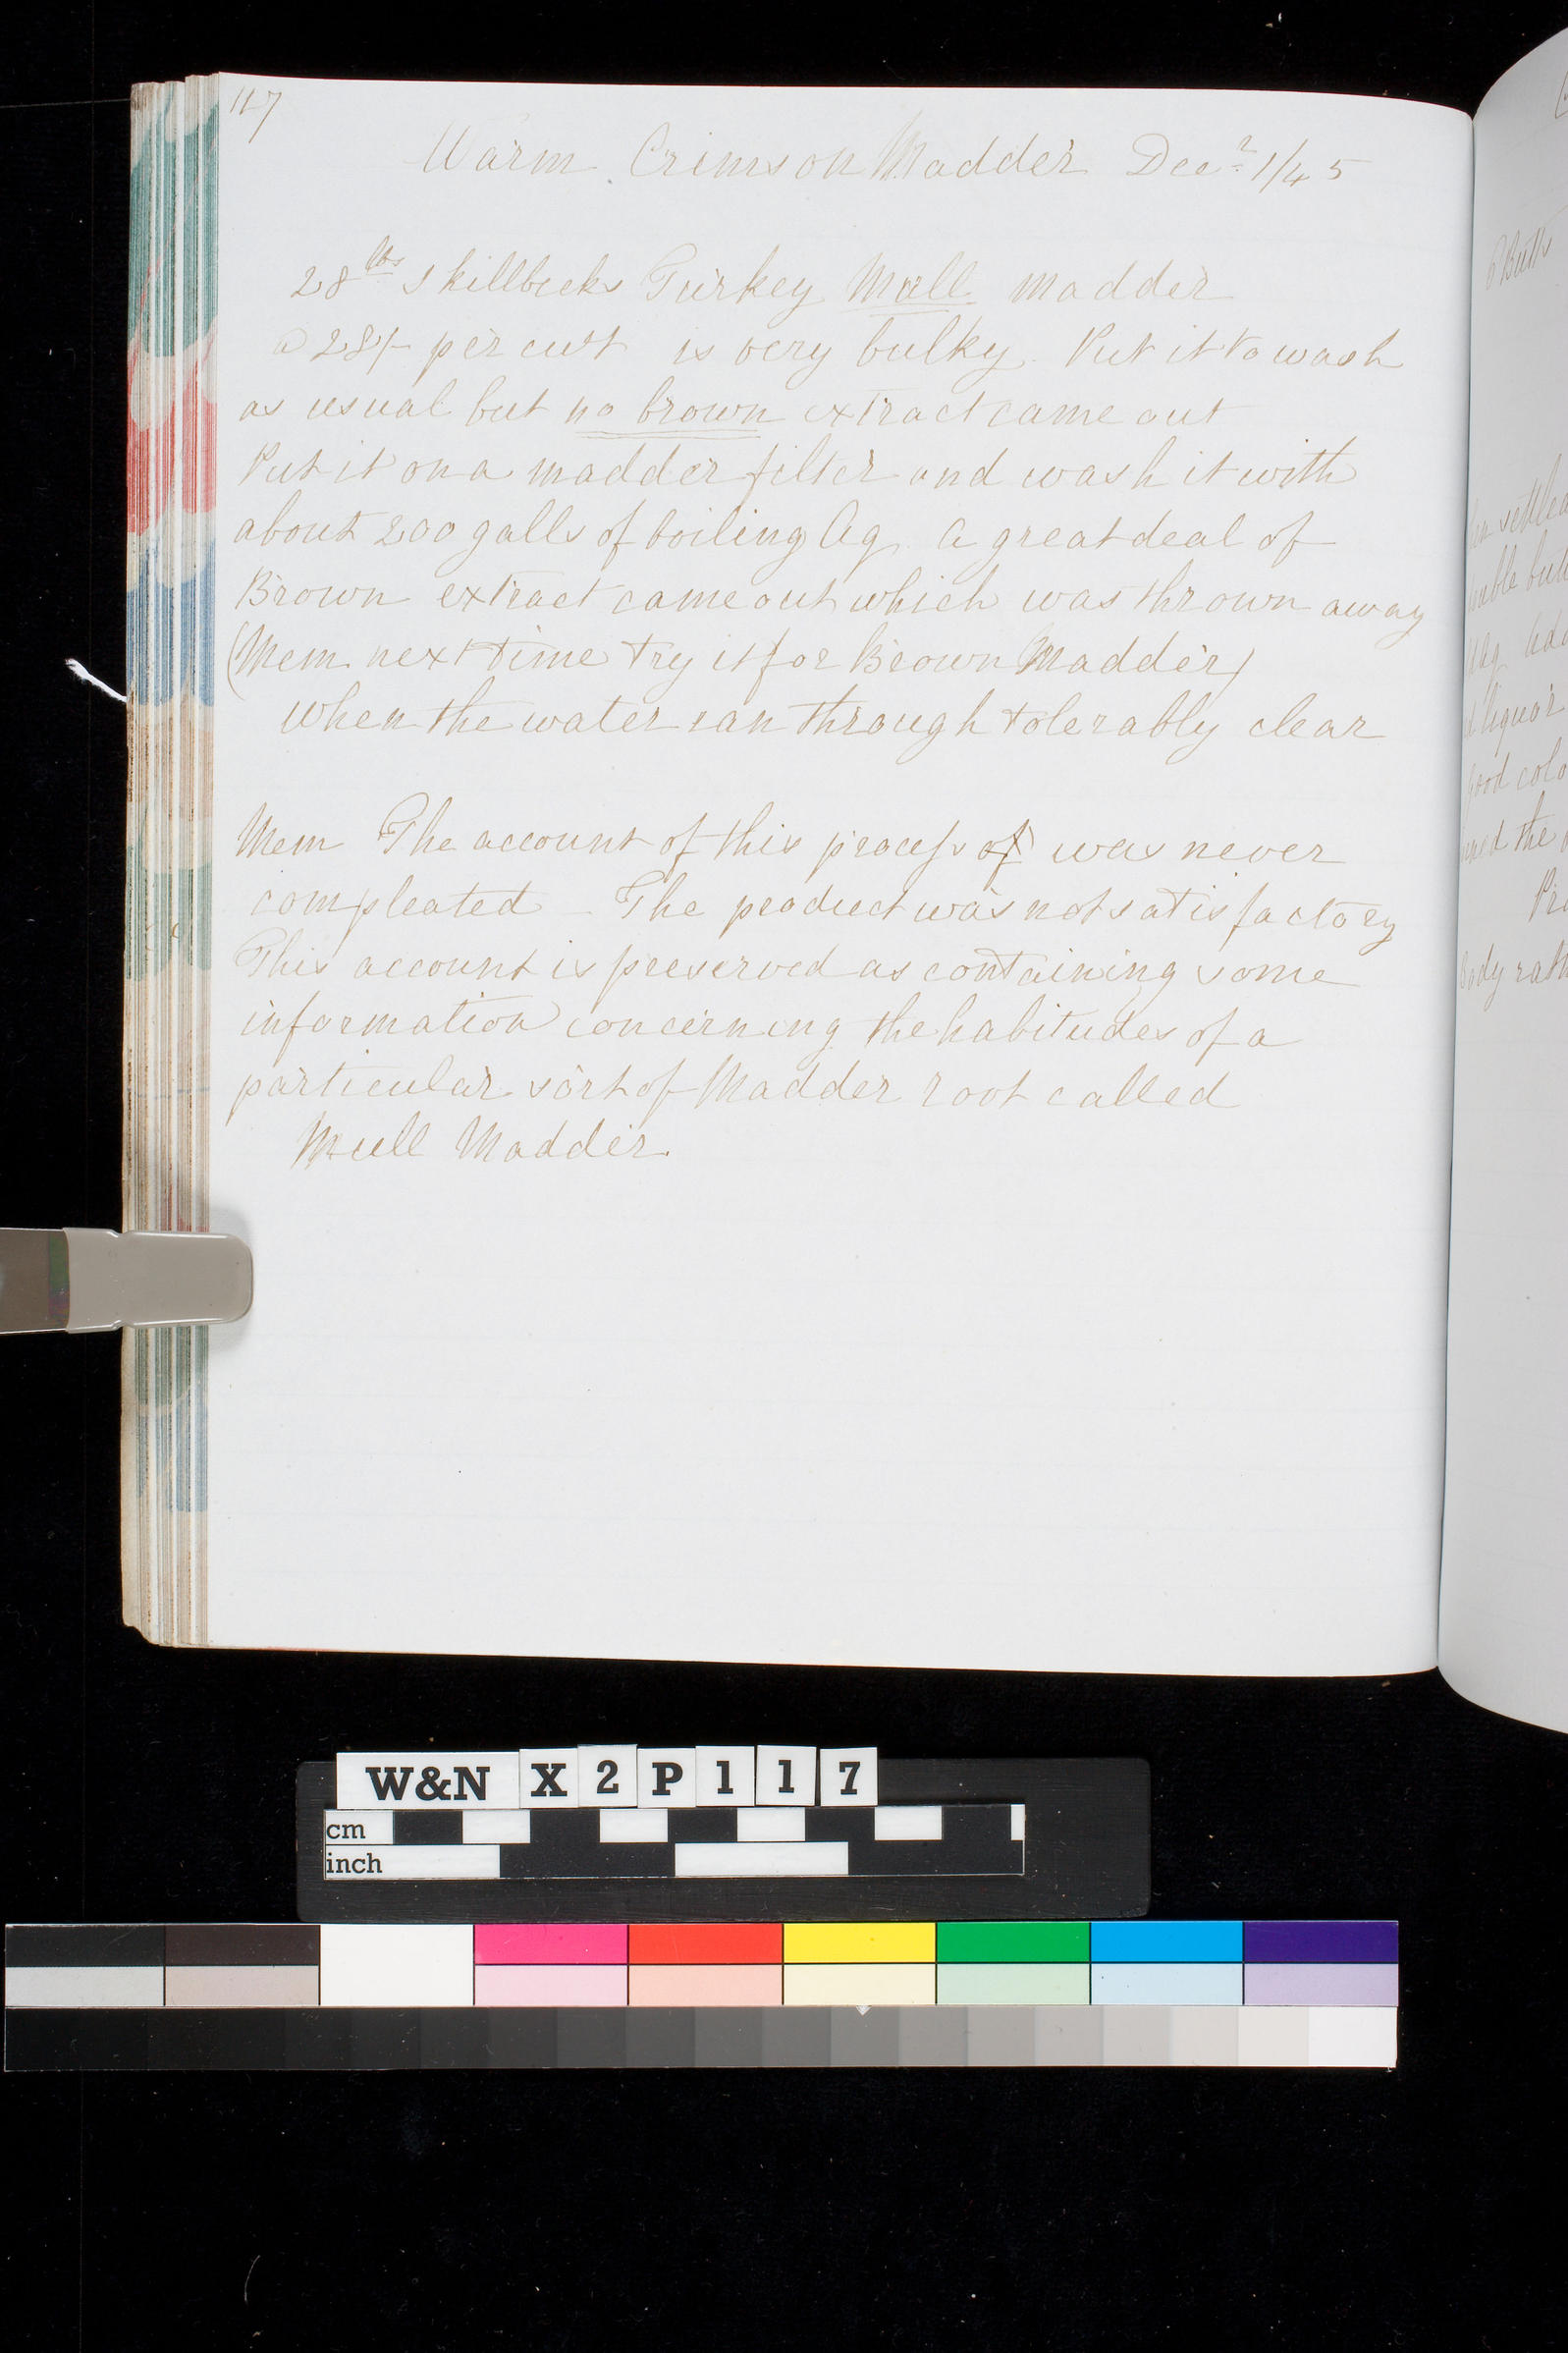 117
Warm Crimson Madder Decr 1/45
28 lbs Skillbecks Turkey Mull Madder
@ 28/- per cwt is very bulky. Put it to wash
as usual but no brown extract came out
Put it on a madder filter and wash it with
about 200 galls of boiling Aq. A great deal of
Brown extract came out which was thrown away
(Mem next time try it for Brown Madder)
when the water ran through tolerably clear
Mem The account of this process of was never
compleated – The product was not satisfactory
This account is preserved as containing some
information concerning the habitudes of a
particular sort of Madder root called
Mull Madder.
6 Butts
settled
liquor
good colo
the
Body rath
W&N X2P117
cm
inch